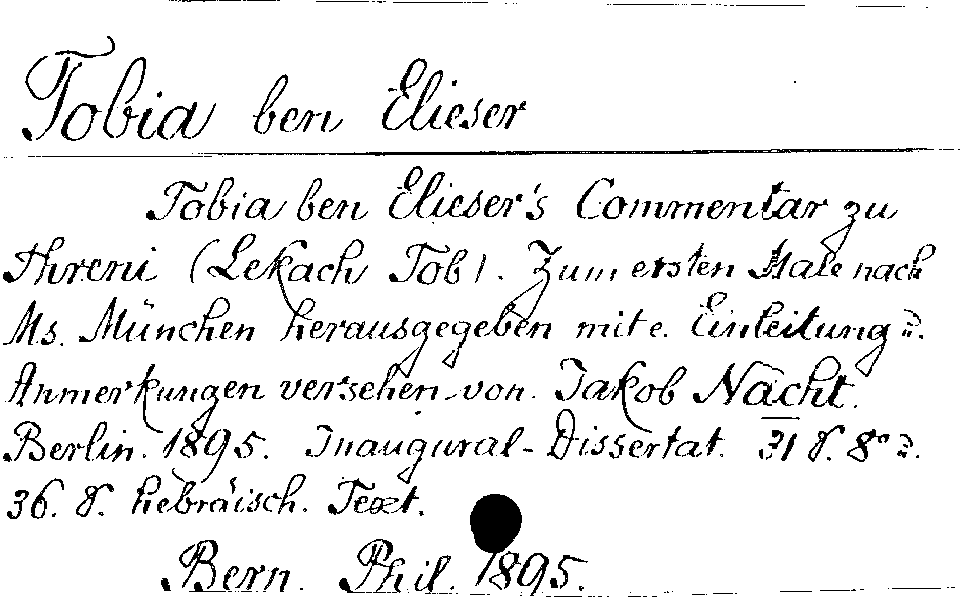 Tobia ben Elieser
Tobia ben Elieser's Commentar zu
Threni (Lekach Tob). Zum ersten Male nach
Ms. München herausgegeben mit e. Einleitung u.
Anmerkungen versehen von Jakob Nacht.
Berlin. 1895. Inaugural-Dissertat. 31 S. 8° u.
36. S. hebräisch. Text.
Bern. Phil. 1895.